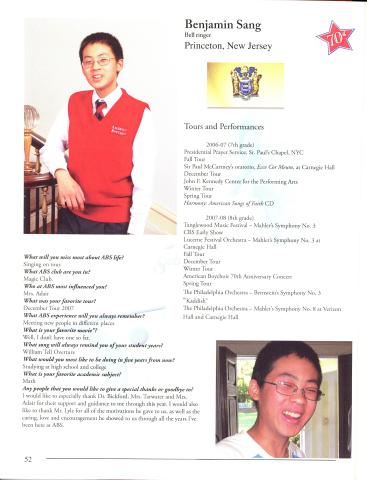 Benjamin Sang
Bell ringer
Princeton, New Jersey
70th
Tours and Performances
2006-07 (7th grade)
Presidential Prayer Service, St. Paul's Chapel, NYC
Fall Tour
Sir Paul McCartney's oratorio, Ecce Cor Meum, at Carnegie Hall
December Tour
John F. Kennedy Center for the Performing Arts
Winter Tour
Spring Tour
Harmony: American Songs of Faith CD
2007-08 (8th grade)
Tanglewood Music Festival – Mahler's Symphony No. 3
CBS Early Show
Lucerne Festival Orchestra – Mahler's Symphony No. 3 at
Carnegie Hall
Fall Tour
December Tour
Winter Tour
American Boychoir 70th Anniversary Concert
Spring Tour
The Philadelphia Orchestra – Bernstein's Symphony No. 3
"Kaddish"
The Philadelphia Orchestra – Mahler's Symphony No. 8 at Verizon
Hall and Carnegie Hall
What will you miss most about ABS life?
Singing on tour
What ABS club are you in?
Magic Club.
Who at ABS most influenced you?
Mrs. Adair
What was your favorite tour?
December Tour 2007
What ABS experience will you always remember?
Meeting new people in different places
What is your favorite movie?
Well, I don't have one so far.
What song will always remind you of your student years?
William Tell Overture
What would you most like to be doing in five years from now?
Studying at high school and college
What is your favorite academic subject?
Math
Any people that you would like to give a special thanks or goodbye to?
I would like to especially thank Dr. Bickford, Mrs. Tarwater and Mrs.
Adair for their support and guidance to me through this year. I would also
like to thank Mr. Lyle for all of the motivations he gave to us, as well as the
caring, love and encouragement he showed to us through all the years I've
been here at ABS.
52